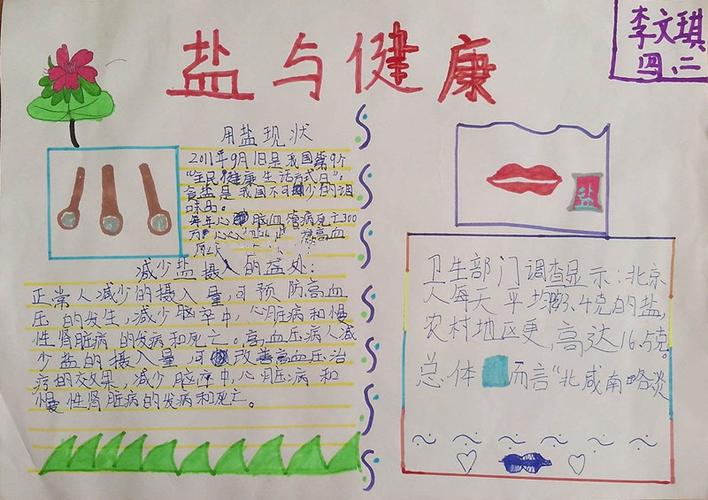 盐与健康
李文琪
四、二
用盐现状
2011年9月1日是我国第9个
"全民健康生活方式日"。
食盐是我国不可缺少的调
味品。
每年心脑血管病死亡300
万 高血
减少盐摄入的益处:
正常人减少的摄入量,可预防高血
压的发生,减少脑卒中,心脏病和慢
性肾脏病的发病和死亡。高血压病人减
少盐的摄入量,可改善高血压治
疗的效果,减少脑卒中,心脏病和
慢性肾脏病的发病和死亡。
盐
卫生部门调查显示:北京
人每天平均 13.4克的盐,
农村地区更,高达16.5克。
总体而言"北咸南略淡